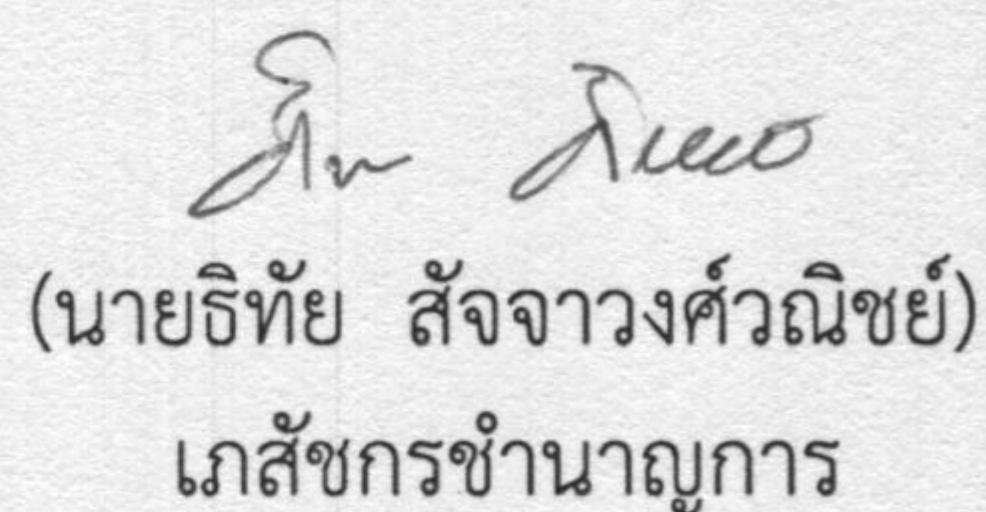 (นายธิทัย สัจจาวงศ์วณิชย์)
เภสัชกรชำนาญการ